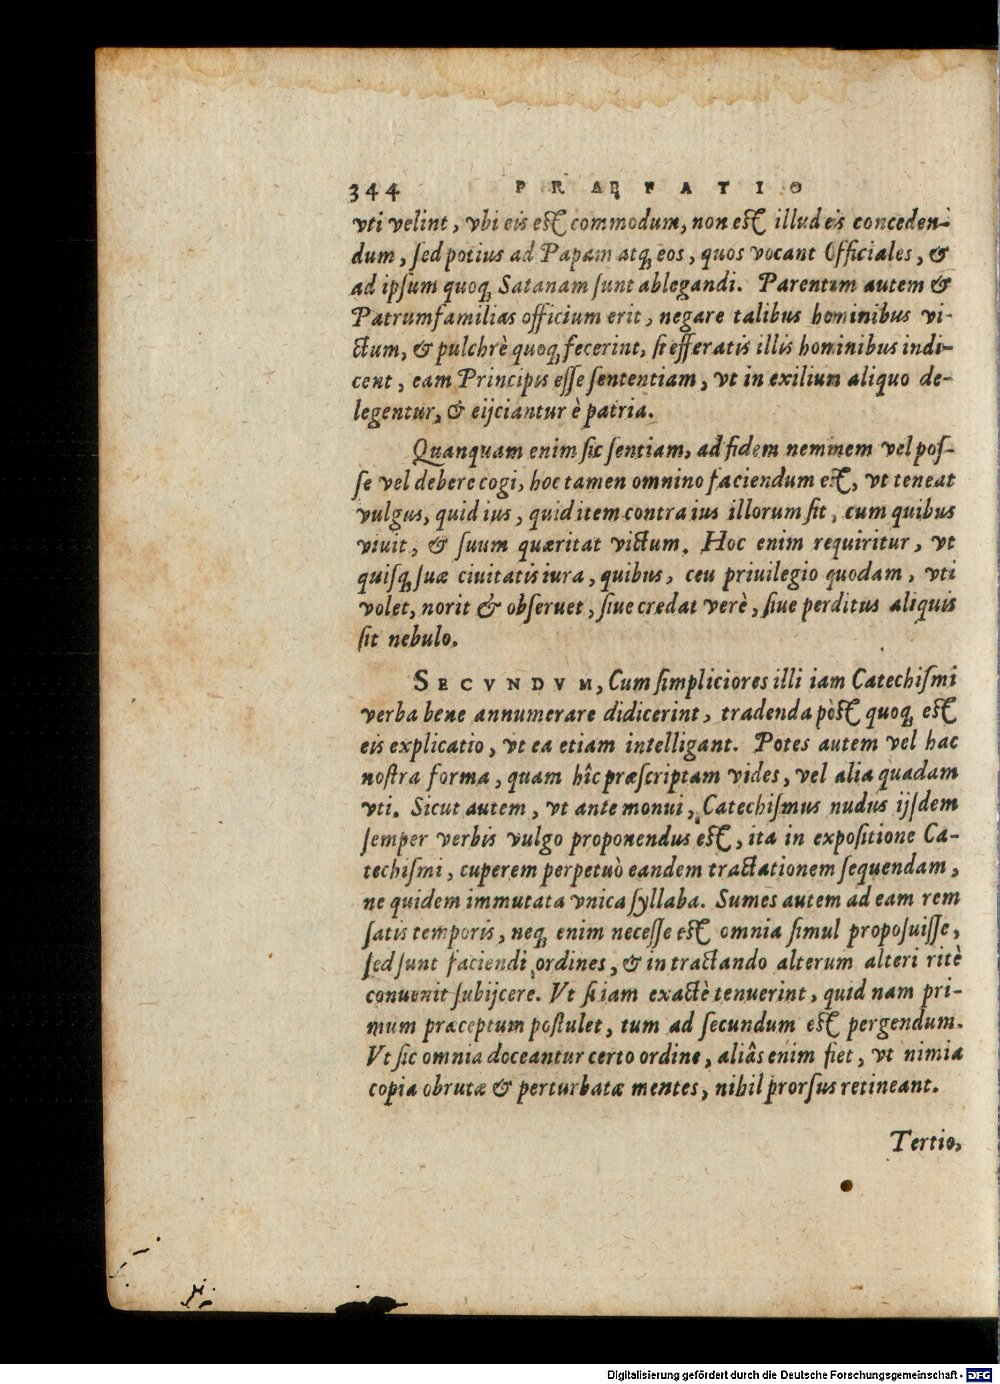 344 PRÆFATIO
vti velint, vbi eis est commodum, non est illud eis conceden-
dum, sed potius ad Papam atq; eos, quos vocant Officiales, &
ad ipsum quoq; Satanam sunt ablegandi. Parentum autem &
Patrumfamilias officium erit, negare talibus hominibus vi-
ctum, & pulchrè quoq; fecerint, si efferatis illis hominibus indi-
cent, eam Principis esse sententiam, vt in exilium aliquo de-
legentur, & eijciantur è patria.
Quanquam enim sic sentiam, ad fidem neminem vel pos-
se vel debere cogi, hoc tamen omnino faciendum est, vt teneat
vulgus, quid ius, quid item contra ius illorum sit, cum quibus
viuit, & suum quæritat victum. Hoc enim requiritur, vt
quisq; suæ ciuitatis iura, quibus, ceu priuilegio quodam, vti
volet, norit & obseruet, siue credat verè, siue perditus aliquis
sit nebulo.
SECVNDVM, Cum simpliciores illi iam Catechismi
verba bene annumerare didicerint, tradenda pòst quoq; est
eis explicatio, vt ea etiam intelligant. Potes autem vel hac
nostra forma, quam hîc præscriptam vides, vel alia quadam
vti. Sicut autem, vt ante monui, Catechismus nudus ijsdem
semper verbis vulgo proponendus est, ita in expositione Ca-
techismi, cuperem perpetuò eandem tractationem sequendam,
ne quidem immutata vnica syllaba. Sumes autem ad eam rem
satis temporis, neq; enim necesse est omnia simul proposuisse,
sed sunt faciendi ordines, & in tractando alterum alteri ritè
conuenit subijcere. Vt si iam exactè tenuerint, quid nam pri-
mum præceptum postulet, tum ad secundum est pergendum.
Vt sic omnia doceantur certo ordine, aliâs enim fiet, vt nimia
copia obrutæ & perturbatæ mentes, nihil prorsus retineant.
Tertio,
Digitalisierung gefördert durch die Deutsche Forschungsgemeinschaft - DFG